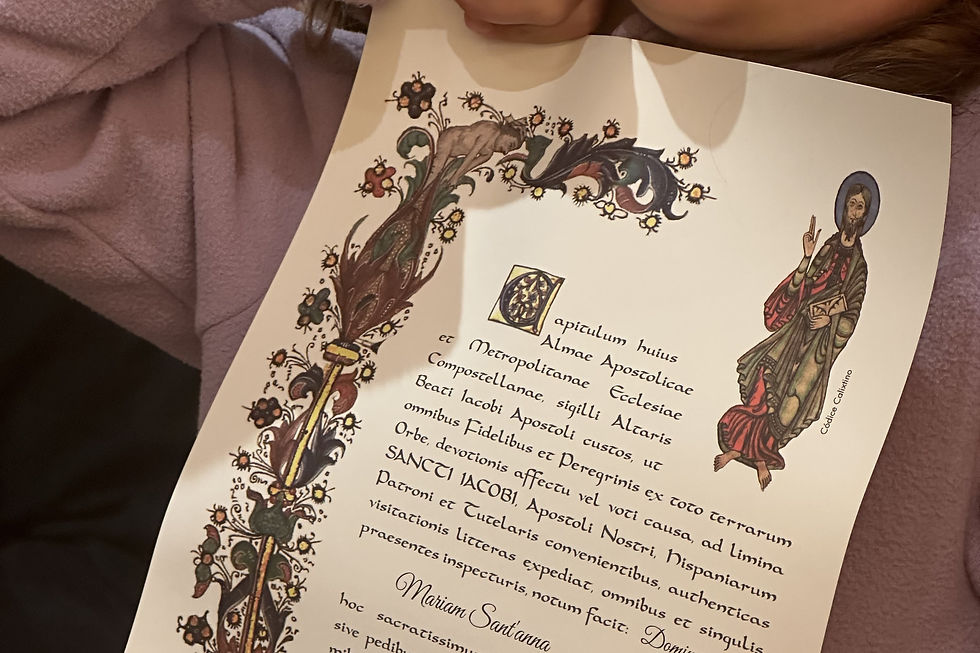 Capitulum huius
Almae Apostolicae
et Metropolitanae Ecclesiae
Compostellanae, sigilli Altaris
Beati Iacobi Apostoli custos, ut
omnibus Fidelibus et Peregrinis ex toto terrarum
Orbe, devotionis affectu vel voti causa, ad limina
SANCTI IACOBI, Apostoli Nostri, Hispaniarum
Patroni et Tutelaris convenientibus, authenticas
visitationis litteras expediat, omnibus et singulis
praesentes inspecturis, notum facit:
Mariam Sant'anna
hoc sacratissimu
sive pedibu
Códice Calixtino